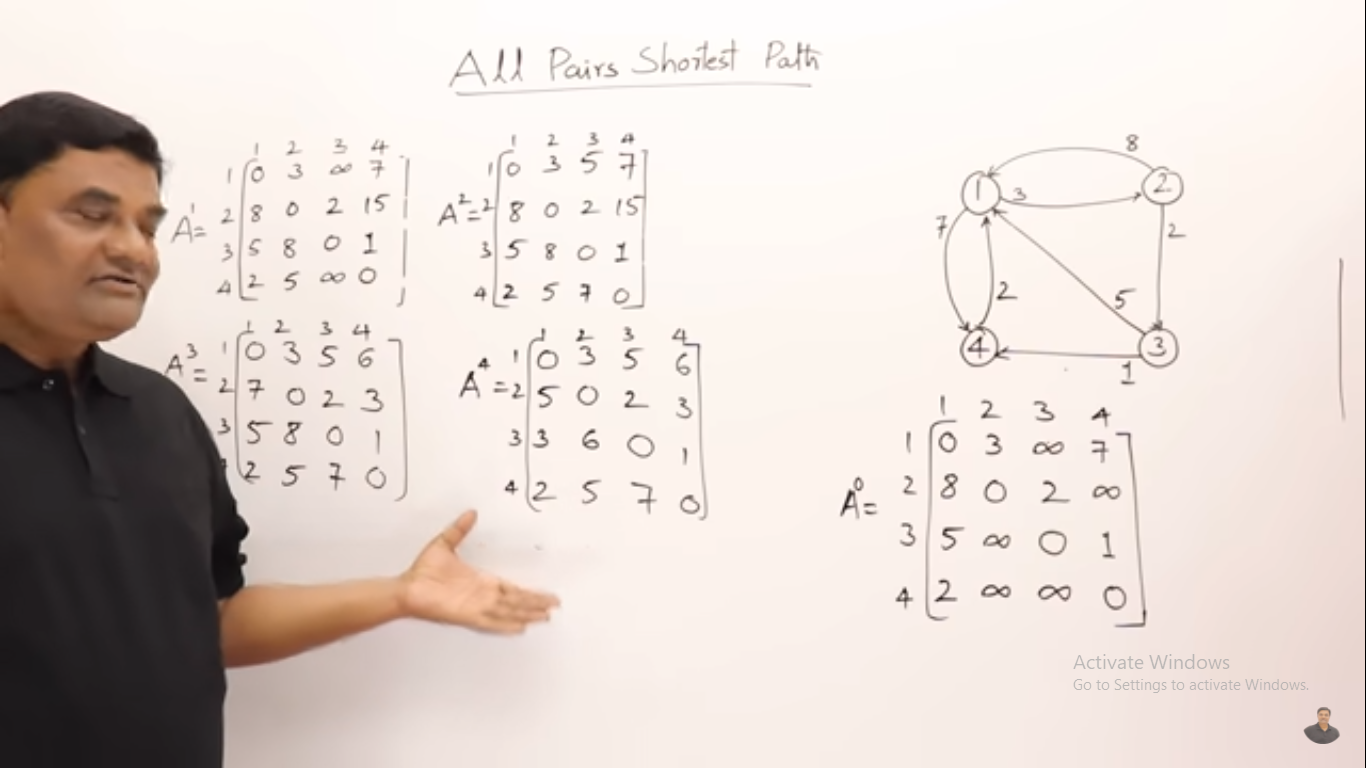 All Pairs Shortest Path
1 2 3 4
1 0 3 ∞ 7
A¹= 2 8 0 2 15
3 5 8 0 1
4 2 5 ∞ 0
1 2 3 4
1 0 3 5 7
A²= 2 8 0 2 15
3 5 8 0 1
4 2 5 7 0
1 2 3 4
A³= 1 0 3 5 6
2 7 0 2 3
3 5 8 0 1
2 5 7 0
1 2 3 4
1 0 3 5 6
A⁴= 2 5 0 2 3
3 3 6 0 1
4 2 5 7 0
8
1 3 2
7 2
2 5
4 3
1
1 2 3 4
1 0 3 ∞ 7
A⁰= 2 8 0 2 ∞
3 5 ∞ 0 1
4 2 ∞ ∞ 0
Activate Windows
Go to Settings to activate Windows.